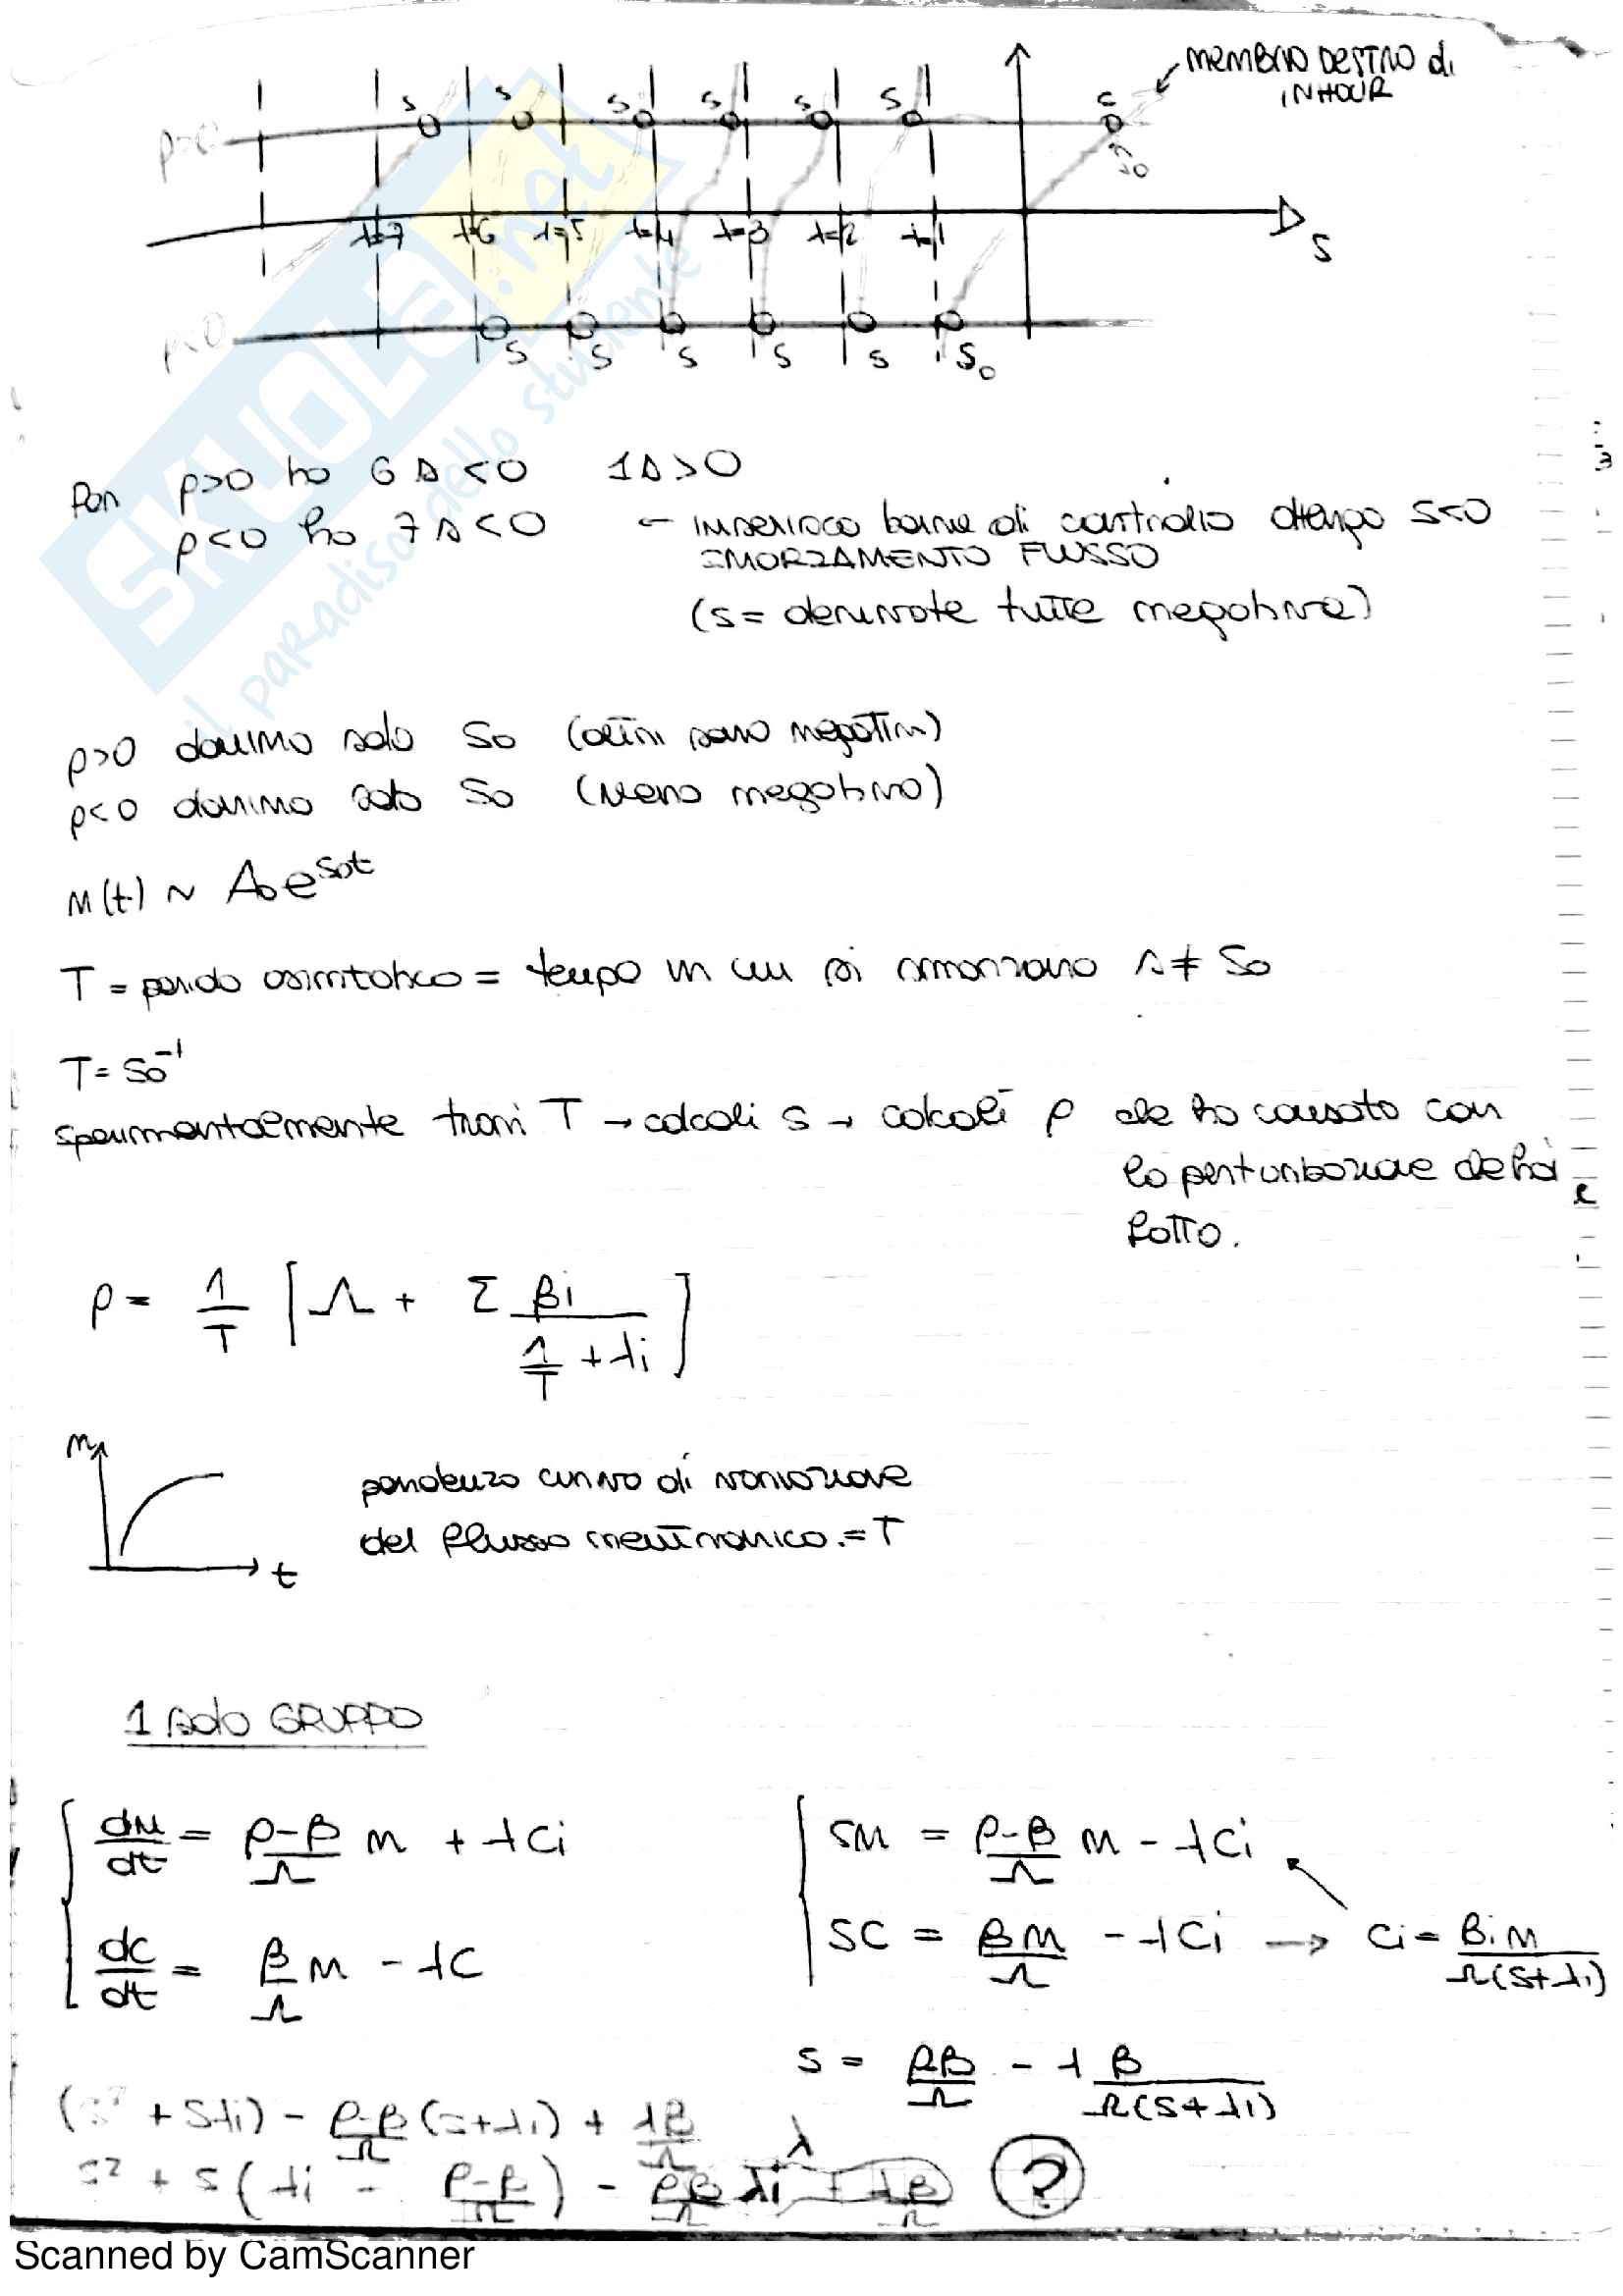 membro destro di
INHOUR
ρ>0
s s s s s s s
s0
λ=7 λ=6 λ=5 λ=4 λ=3 λ=2 λ=1
s
ρ<0
s s s s s s0
SKUOLA.net
il paradiso dello studente
Per ρ>0 ho 6 s<0 1s>0
ρ<0 ho 7 s<0 ← inserisco barre di controllo ottengo s<0
SMORZAMENTO FLUSSO
(s = derivate tutte negative)
ρ>0 domino solo So (altri sono negativi)
ρ<0 domino solo So (meno negativo)
n(t) ~ A0 e^{s0t}
T = periodo asintotico = tempo in cui si smorzano s ≠ So
T = So^{-1}
sperimentalmente trovi T → calcoli s → calcoli ρ che ho causato con
la perturbazione che hai
fatto.
ρ = 1/T [Λ + Σ βi/(1/T + λi)]
n
t
pendenza curva di variazione
del flusso neutronico. = T
1 solo GRUPPO
dn/dt = (ρ-β)/Λ n + λCi
sn = (ρ-β)/Λ n - λCi
dc/dt = β/Λ n - λC
sC = βn/Λ - λCi → Ci = βi n/(Λ(s+λi))
s = ρβ/Λ - λ β/(Λ(s+λi))
(s² + sλi) - (ρ-β)/Λ (s+λi) + λβ/Λ
s² + s(λi - (ρ-β)/Λ) - ρβ/Λ λi + λβ/Λ ?
Scanned by CamScanner